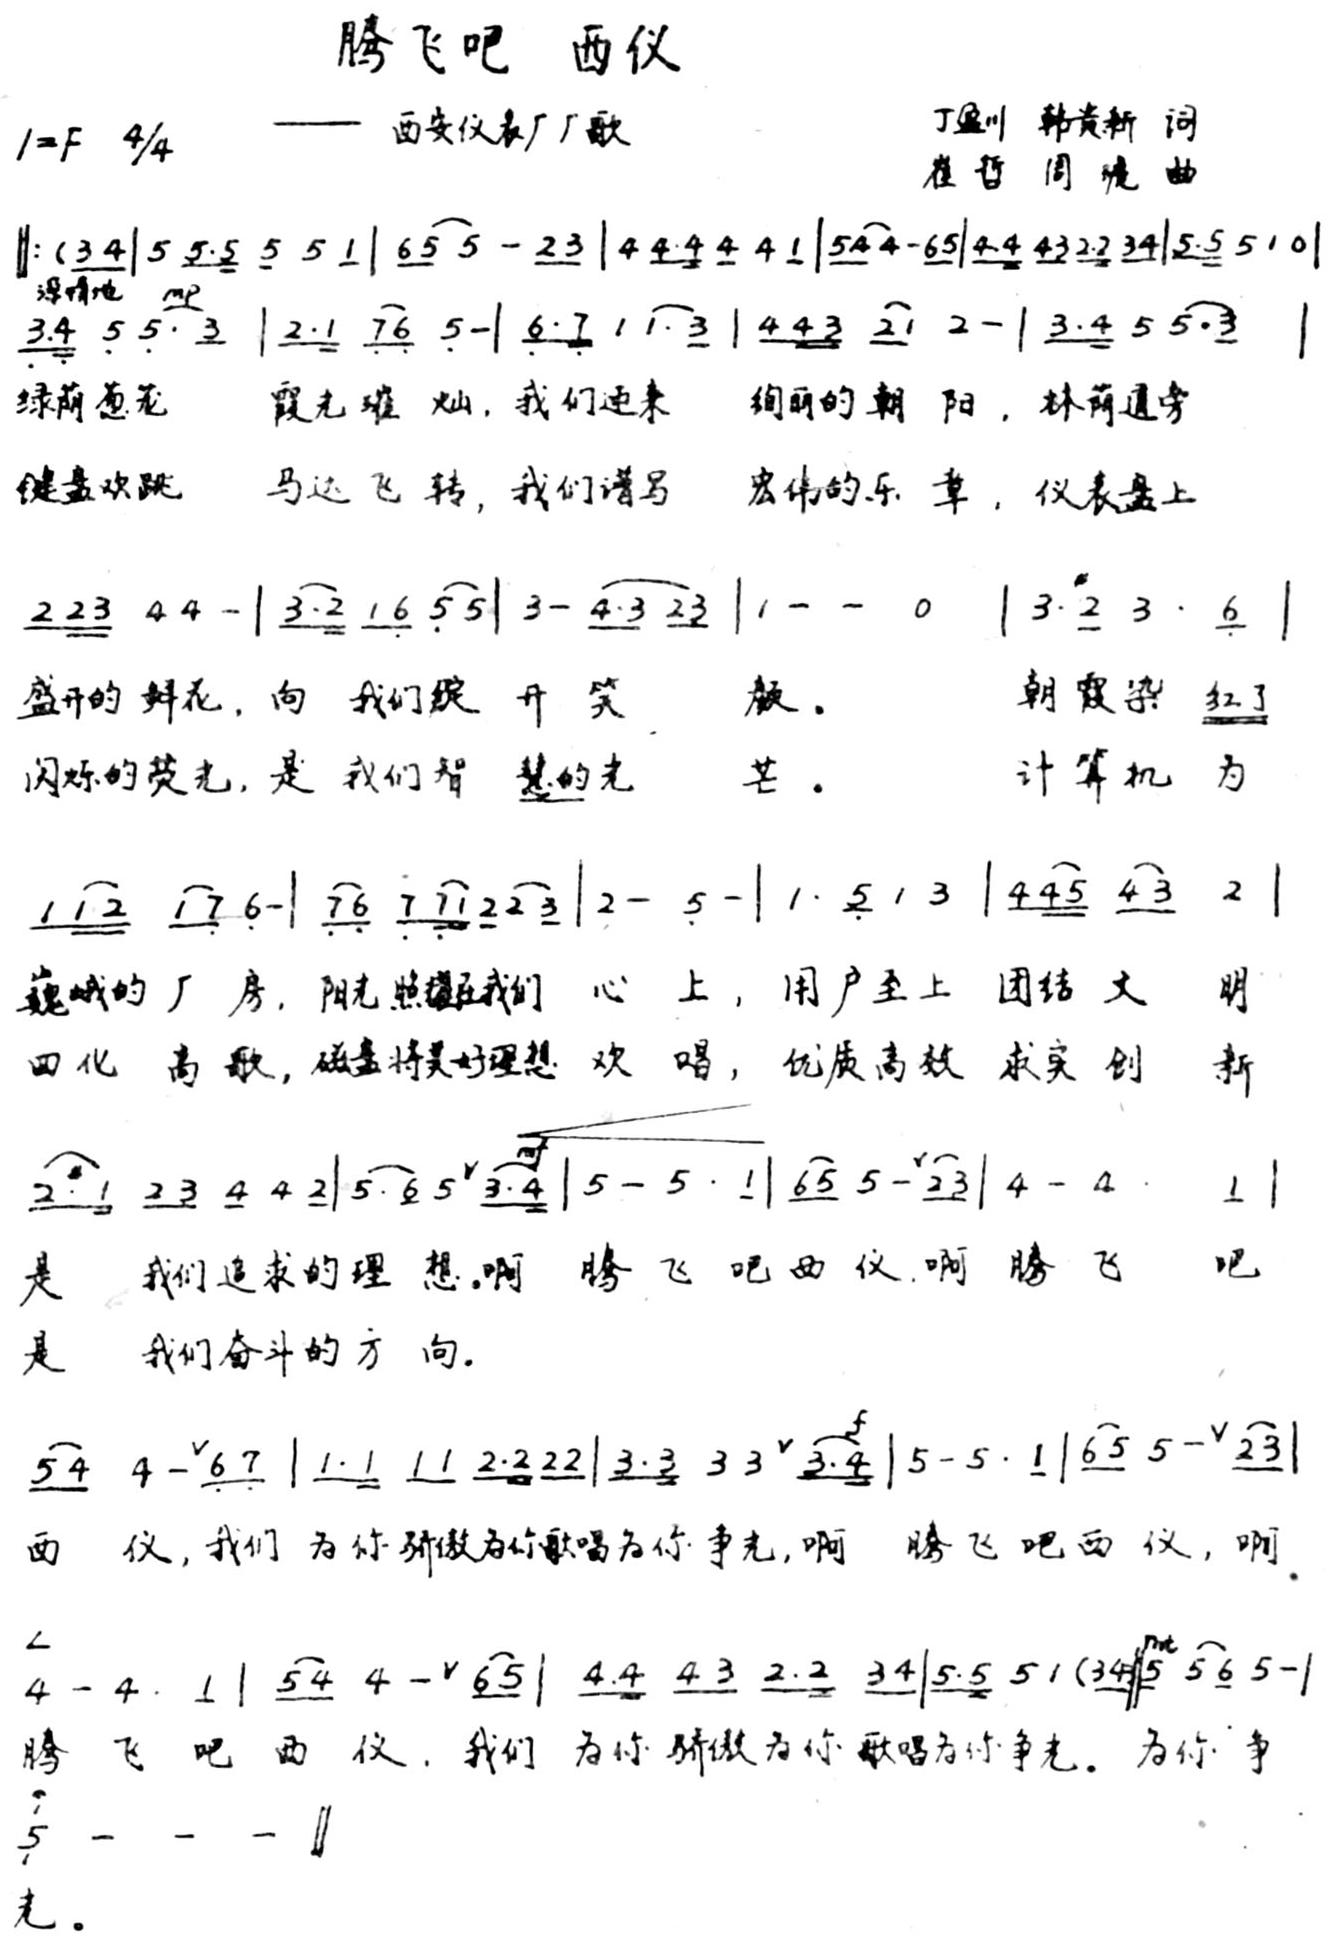 腾飞吧 西仪
1=F 4/4 —— 西安仪表厂厂歌 丁盈川 韩贵新 词
崔哲 周 曲
‖: (3 4 | 5 5·5 5 5 1 | 6 5 5 - 2 3 | 4 4·4 4 4 1 | 5 4 4 - 6 5 | 4·4 4 3 2·2 3 4 | 5·5 5 1 0 |
深情地 mp
3·4 5 5·3 | 2·1 7 6 5 - | 6·7 1 1·3 | 4 4 3 2 1 2 - | 3·4 5 5·3 |
绿荫葱茏 霞光璀灿，我们迎来 绚丽的朝阳，林荫道旁
键盘欢跳 马达飞转，我们谱写 宏伟的乐章，仪表盘上
2 2 3 4 4 - | 3·2 1 6 5 5 | 3 - 4·3 2 3 | 1 - - 0 | 3·#2 3· 6 |
盛开的鲜花，向 我们绽开笑 颜。 朝霞染红了
闪烁的荧光，是 我们智慧的光 芒。 计算机为
1 1 2 1 7 6 - | 7 6 7 7 1 2 2 3 | 2 - 5 - | 1· 5 1 3 | 4 4 5 4 3 2 |
巍峨的厂房，阳光照耀在我们心上，用户至上 团结文明
四化高歌，磁盘将美好理想欢唱，优质高效 求实创新
2·#1 2 3 4 4 2 | 5·6 5 ∨ 3·4 mf | 5 - 5· 1 | 6 5 5 - ∨ 2 3 | 4 - 4· 1 |
是 我们追求的理想。啊 腾飞吧西仪，啊 腾飞吧
是 我们奋斗的方向。
5 4 4 - ∨ 6 7 | 1·1 1 1 2·2 2 2 | 3·3 3 3 ∨ 3·4 f | 5 - 5· 1 | 6 5 5 - ∨ 2 3 |
西仪，我们为你骄傲为你歌唱为你争光，啊 腾飞吧西仪，啊
4 - 4· 1 | 5 4 4 - ∨ 6 5 | 4·4 4 3 2·2 3 4 | 5·5 5 1 (3 4 :‖ 5 5 6 5 - |
腾飞吧西仪，我们为你骄傲为你歌唱为你争光。为你争
5 - - - ‖
光。